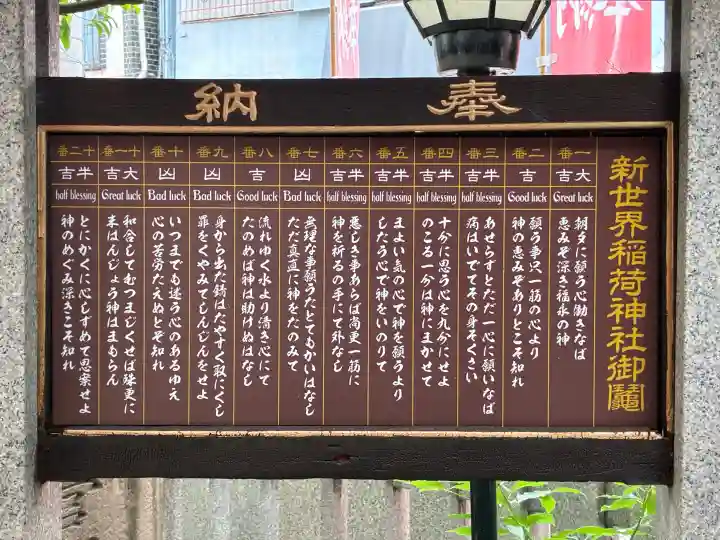 奉納
新世界稲荷神社御鬮
一番
大吉
Great luck
朝夕に願う心働きなば
恵みぞ深き福永の神
二番
吉
Good luck
願う事只一筋の心より
神の恵みぞありとこそ知れ
三番
半吉
half blessing
あせらずとただ一心に願いなば
病はいでてその身そくさい
四番
半吉
half blessing
十分に思う心を九分にせよ
のこる一分は神にまかせて
五番
半吉
half blessing
まよい気の心で神を願うより
したう心で神をいのりて
六番
半吉
half blessing
悪しき事あらば尚更一筋に
神を祈るの手にて外なし
七番
凶
Bad luck
無理な事願うたとてもかいはなし
ただ真直に神をたのみて
八番
吉
Good luck
流れゆく水より清き心にて
たのめば神は助けぬはなし
九番
凶
Bad luck
身から出た錆はたやすく取にくし
罪をくやみてしんじんをせよ
十番
凶
Bad luck
いつまでも迷う心のあるゆえ
心の苦労たえぬとぞ知れ
十一番
大吉
Great luck
和合してむつまじくせば殊更に
末はんじょう神はまもらん
十二番
半吉
half blessing
とにかくに心しずめて思案せよ
神のめぐみ深きこそ知れ